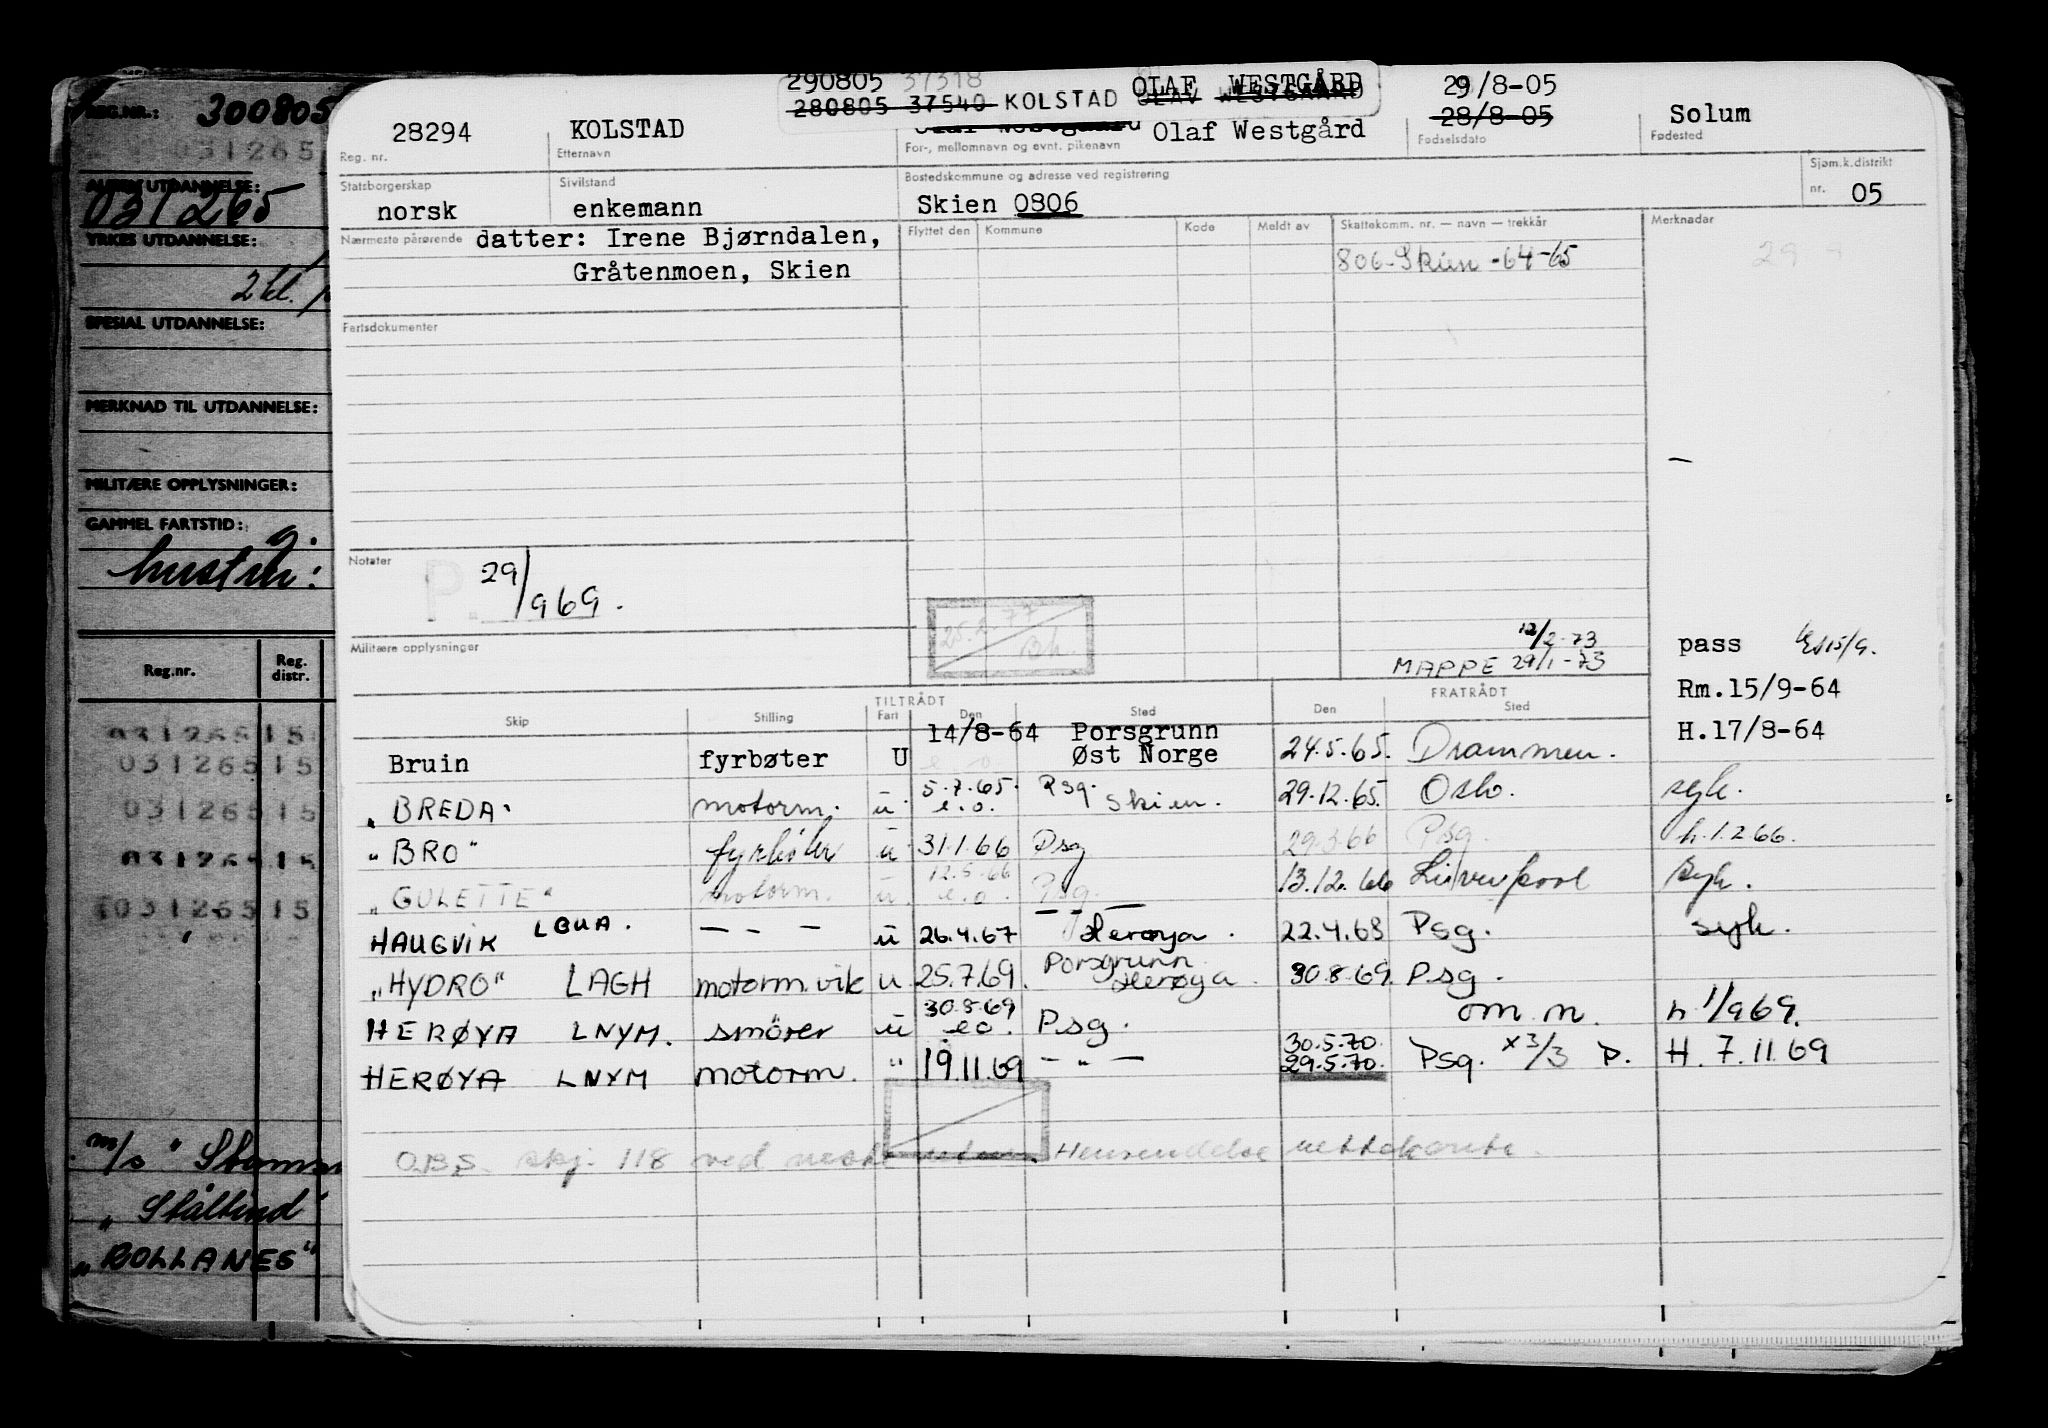 REG.NR.: 300805
031265
ALMEN UTDANNELSE:
031265
YRKES UTDANNELSE:
2 kl.
SPESIAL UTDANNELSE:
MERKNAD TIL UTDANNELSE:
MILITÆRE OPPLYSNINGER:
GAMMEL FARTSTID:
hustru:
Reg.nr. Reg. distr.
031265 15
031265 15
031265 15
031265 15
031265 15
m/s "
" Stålbind
"BOLLANES"
290805 37318 OLAF WESTGÅRD 29/8-05
280805 37540 KOLSTAD OLAV WESTGAARD 28/8-05
28294 KOLSTAD Olaf Westgaard Olaf Westgård Solum
Reg. nr. Etternavn For-, mellomnavn og evnt. pikenavn Fødselsdato Fødested
Statsborgerskap Sivilstand Bostedskommune og adresse ved registrering Sjøm.k.distrikt
norsk enkemann Skien 0806 nr. 05
Nærmeste pårørende datter: Irene Bjørndalen, Flyttet den Kommune Kode Meldt av Skattekomm. nr. — navn — trekkår Merknader
Gråtenmoen, Skien 806-Skien -64-65
Fartsdokumenter
Notater P. 29/969.
25.2.77
Militære opplysninger
12/2-73
MAPPE 29/1-73
pass
Rm.15/9-64
H.17/8-64
TILTRÅDT FRATRÅDT
Skip Stilling Fart Den Sted Den Sted
Bruin fyrbøter U 14/8-64 Porsgrunn Øst Norge 24.5.65. Drammen.
"BREDA" motorm. u 5.7.65. e.o. Psg. Skien. 29.12.65. Oslo. syk.
"BRO" fyrbøter u 31.1.66 Psg 29.3.66 Psg. h.1.2.66.
"GULETTE" motorm. u. 12.5.66 e.o. Psg. 13.12.66 Liverpool syk.
HAUGVIK LGUA. — — — u 26.4.67 Herøya. 22.4.68 Psg. syk.
"HYDRO" LAGH motorm.vik u 25.7.69. Porsgrunn Herøya. 30.8.69. Psg.
HERØYA LNYM. smörer u 30.8.69 e.o. Psg. om.m. h 1/969.
HERØYA LNYM motorm. " 19.11.69 — " — 30.5.70. 29.5.70. Psg. x3/3 P. H. 7.11.69
OBS. skj. 118 ved neste Henvendelse